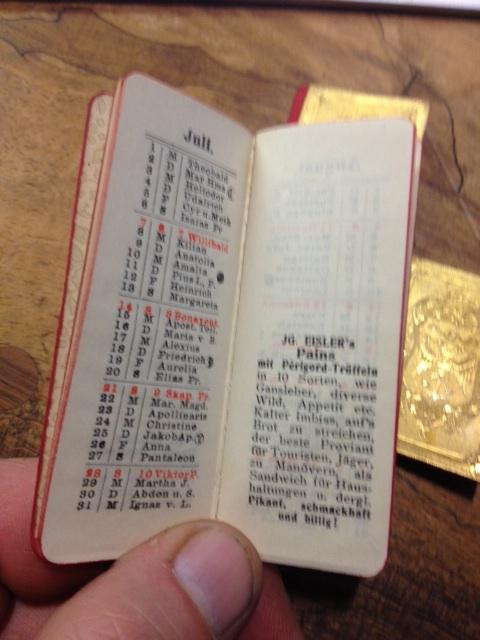 Juli.
1 M Theobald
2 D Mar. Hms.
3 M Heliodor
4 D Udalrich
5 F Cyr. u. Meth
6 S Isaias Pr
7 S 7 Willibald
8 M Kilian
9 D Anatolia
10 M Amalia
11 D Pius I., P.
12 F Heinrich
13 S Margareta
14 S 8 Bonavent.
15 M Apost. Teil.
16 D Maria v. B.
17 M Alexius
18 D Friedrich
19 F Aurelia
20 S Elias Pr.
21 S 9 Skap. Pr.
22 M Mar. Magd.
23 D Apollinaris
24 M Christine
25 D Jakob Ap.
26 F Anna
27 S Pantaleon
28 S 10 Viktor P.
29 M Martha J.
30 D Abdon u. S.
31 M Ignaz v. L.
JG. EISLER's
Pains
mit Périgord-Trüffeln
in 10 Sorten, wie
Gansleber, diverse
Wild, Appetit etc.
Kalter Imbiss, auf's
Brot zu streichen,
der beste Proviant
für Touristen, Jäger,
zu Manövern, als
Sandwich für Haus-
haltungen u. dergl.
Pikant, schmackhaft
und billig!